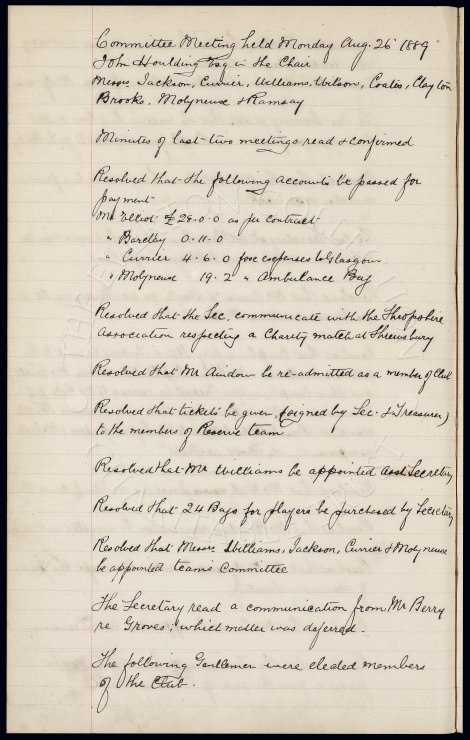 Committee Meeting held Monday Aug. 26 1889
John Houlding Esq in the Chair
Messrs Jackson, Currier, Williams, Wilson, Coates, Clayton
Brooks, Molyneux & Ramsay
Minutes of last two meetings read & confirmed
Resolved that the following accounts be passed for
payment
Mr Elliot £28.0.0 as per contract
" Barclay 0.11.0
" Currier 4.6.0 for expenses to Glasgow
" Molyneux 19.2 " Ambulance Bag
Resolved that the Sec. communicate with the Shropshire
Association respecting a Charity match at Shrewsbury
Resolved that Mr be re-admitted as a member of Club
Resolved that tickets be given (signed by Sec. & Treasurer)
to the members of Reserve team
Resolved that Mr Williams be appointed Asst Secretary
Resolved that 24 Bags for players be purchased by Secretary
Resolved that Messrs Williams, Jackson, Currier & Molyneux
be appointed team's Committee
The Secretary read a communication from Mr Berry
re Groves; which matter was deferred.
The following Gentlemen were elected members
of the Club.